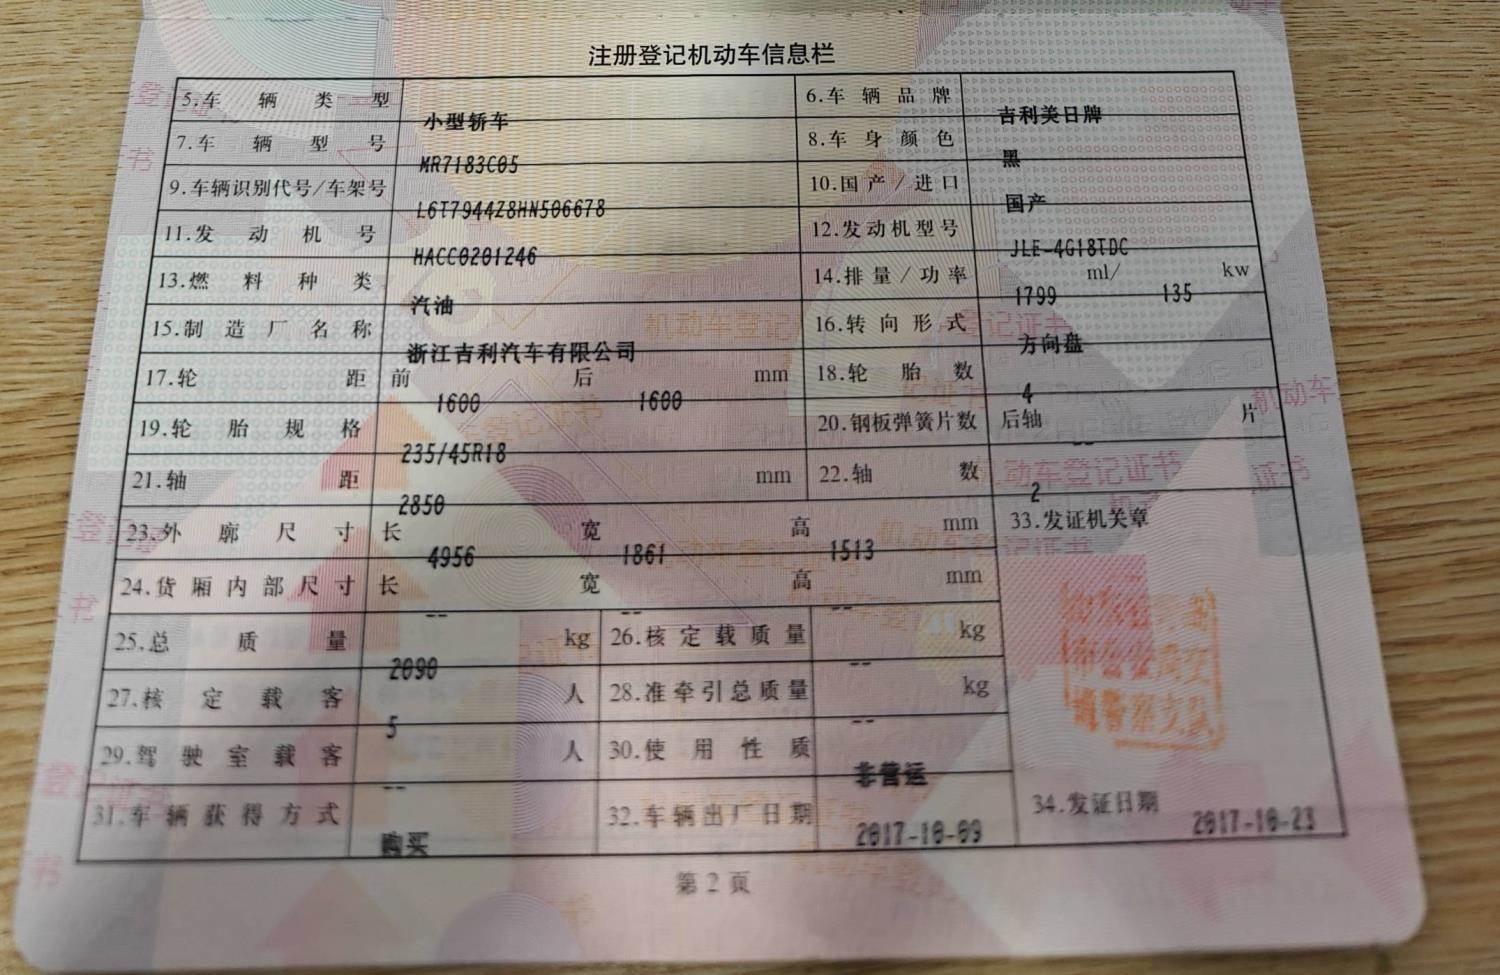 注册登记机动车信息栏
5.车辆类型 小型轿车 6.车辆品牌 吉利美日牌
7.车辆型号 MR7183C05 8.车身颜色 黑
9.车辆识别代号/车架号 L6T7944Z8HN506678 10.国产/进口 国产
11.发动机号 HACC0201246 12.发动机型号 JLE-4G18TDC
13.燃料种类 汽油 14.排量/功率 1799 ml/ 135 kw
15.制造厂名称 浙江吉利汽车有限公司 16.转向形式 方向盘
17.轮距 前 1600 后 1600 mm 18.轮胎数 4
19.轮胎规格 235/45R18 20.钢板弹簧片数 后轴 -- 片
21.轴距 2850 mm 22.轴数 2
23.外廓尺寸 长 4956 宽 1861 高 1513 mm 33.发证机关章
24.货厢内部尺寸 长 -- 宽 -- 高 -- mm
25.总质量 2090 kg 26.核定载质量 -- kg
27.核定载客 5 人 28.准牵引总质量 -- kg
29.驾驶室载客 -- 人 30.使用性质 非营运
31.车辆获得方式 购买 32.车辆出厂日期 2017-10-09 34.发证日期 2017-10-23
第2页